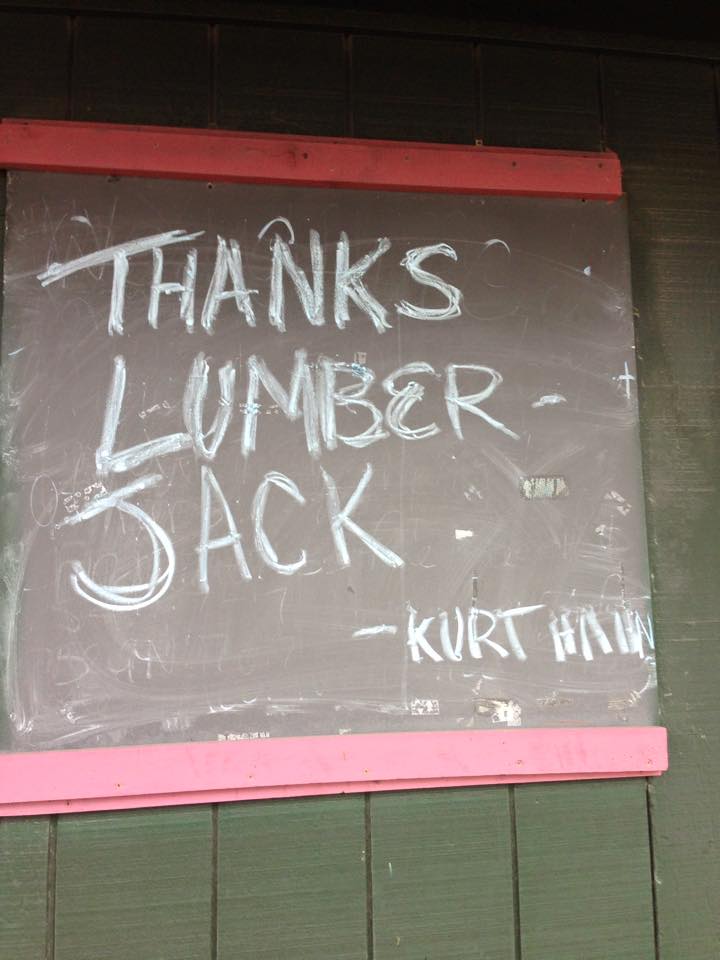 THANKS
LUMBER-
JACK
-KURT HAIN